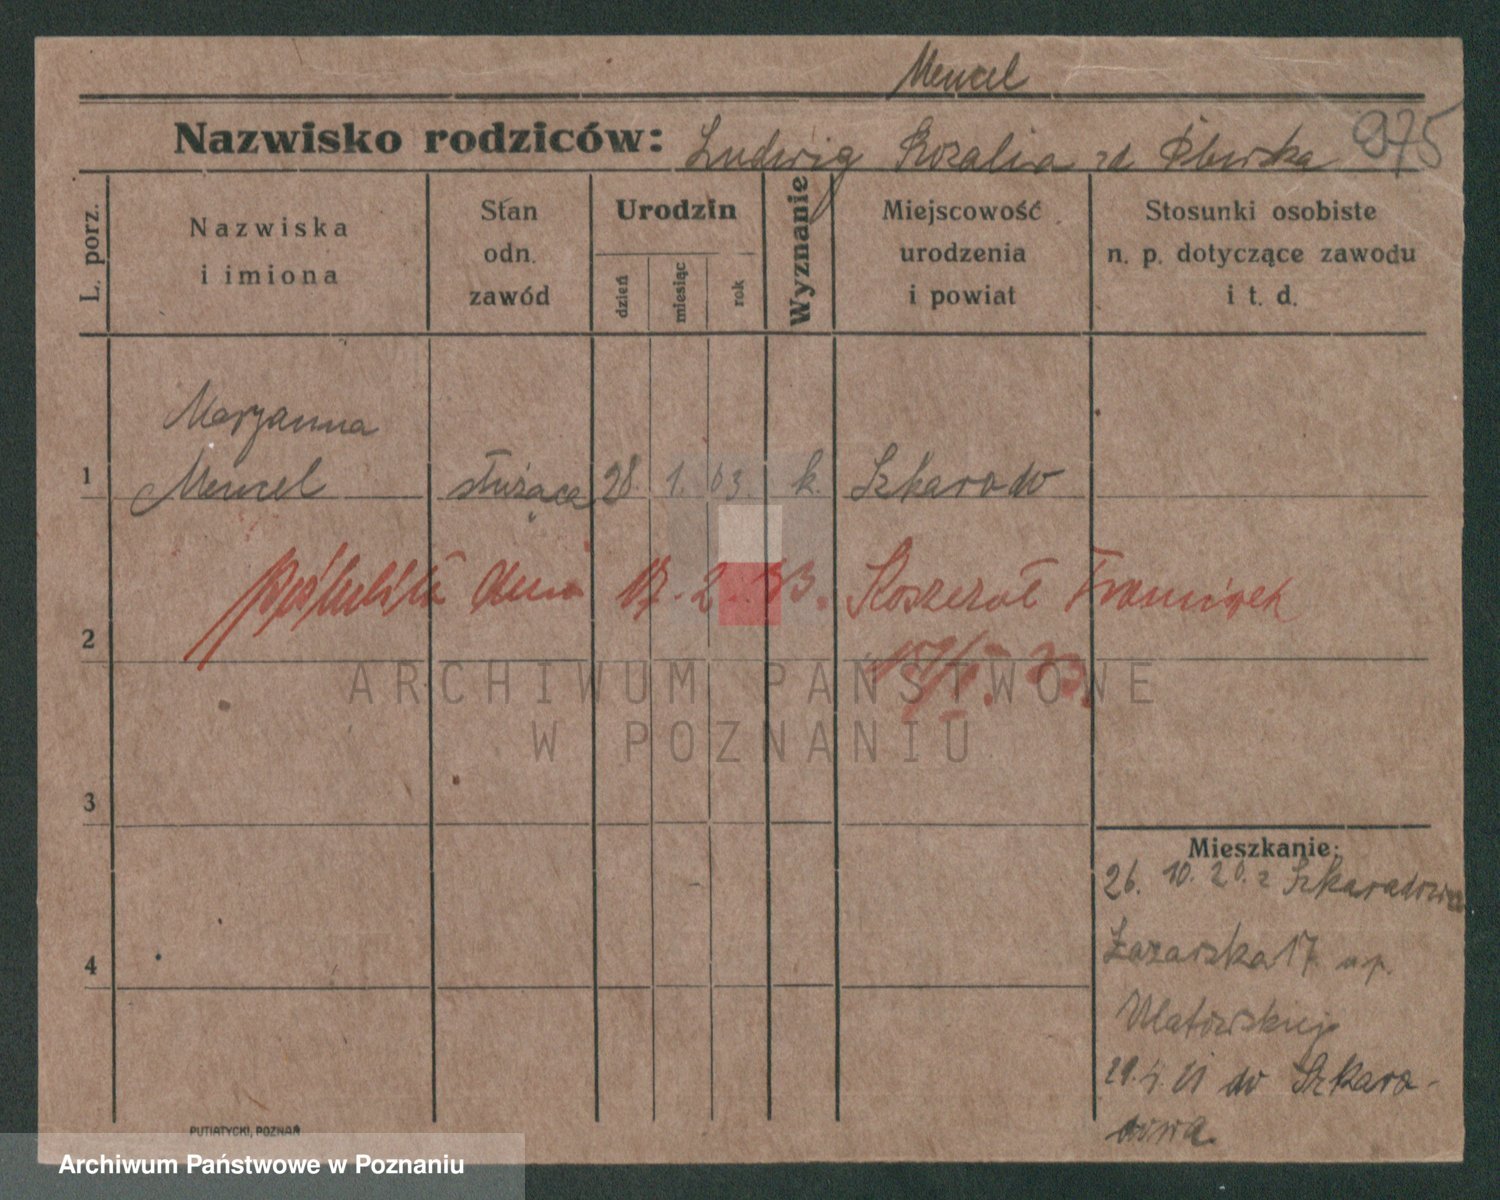 Mencel
Nazwisko rodziców: Ludwig Rozalia zd
975
L. porz.
Nazwiska
i imiona
Stan
odn.
zawód
Urodzin
dzień
miesiąc
rok
Wyznanie
Miejscowość
urodzenia
i powiat
Stosunki osobiste
n. p. dotyczące zawodu
i t. d.
Maryanna
1 Mencel służąca 28. 1. 03. k. Szkaradow
2 17. 2.
ARCHIWUM PAŃSTWOWE
W POZNANIU
3
Mieszkanie:
26. 10. 20. z Szkaradowa
4
Łazarska 17 u p.
Ulatowskiej
29. 4. 21 do Szkara-
dowa.
PUTIATYCKI, POZNAŃ
Archiwum Państwowe w Poznaniu